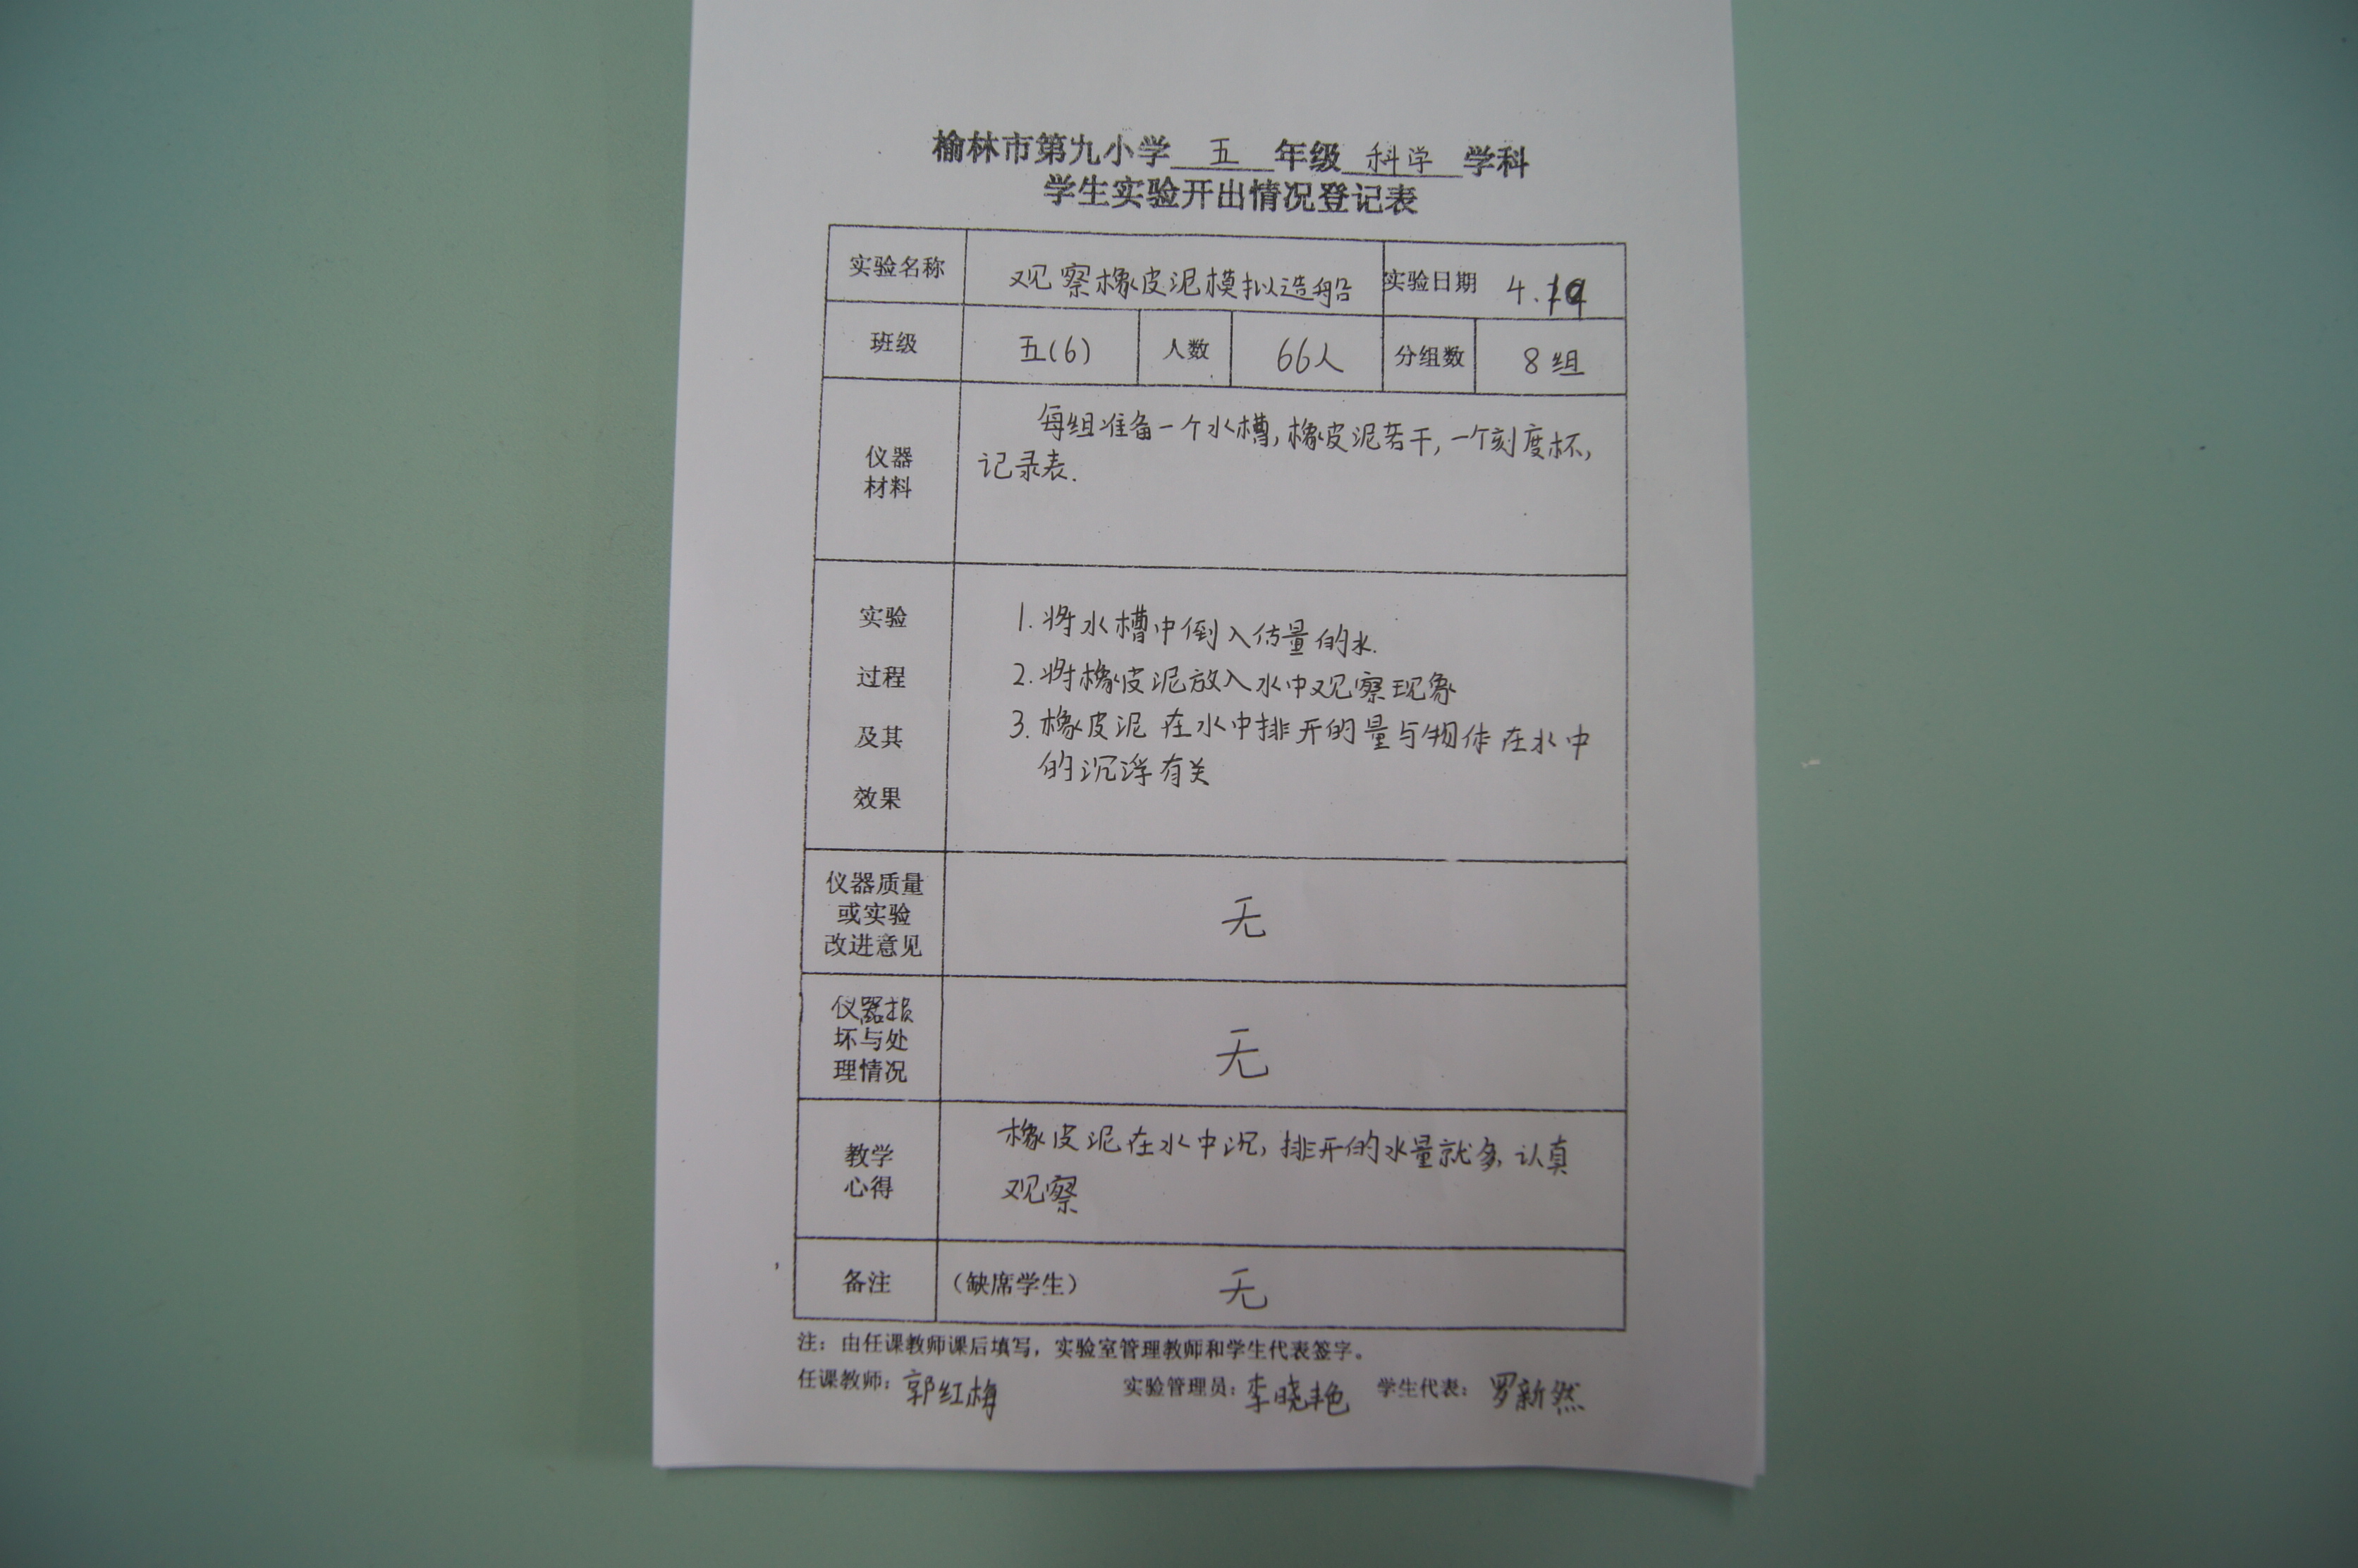 榆林市第九小学 五 年级 科学 学科
学生实验开出情况登记表
实验名称 观察橡皮泥模拟造船 实验日期 4.19
班级 五(6) 人数 66人 分组数 8组
每组准备一个水槽,橡皮泥若干,一个刻度杯,
仪器
材料
记录表.
实验
过程
及其
效果
1.将水槽中倒入估量的水.
2.将橡皮泥放入水中观察现象
3.橡皮泥在水中排开的量与物体在水中
的沉浮有关
仪器质量
或实验
改进意见
无
仪器损
坏与处
理情况
无
教学
心得
橡皮泥在水中沉,排开的水量就多,认真
观察
备注 (缺席学生) 无
注:由任课教师课后填写,实验室管理教师和学生代表签字。
任课教师:郭红梅 实验管理员:李晓艳 学生代表:罗新然